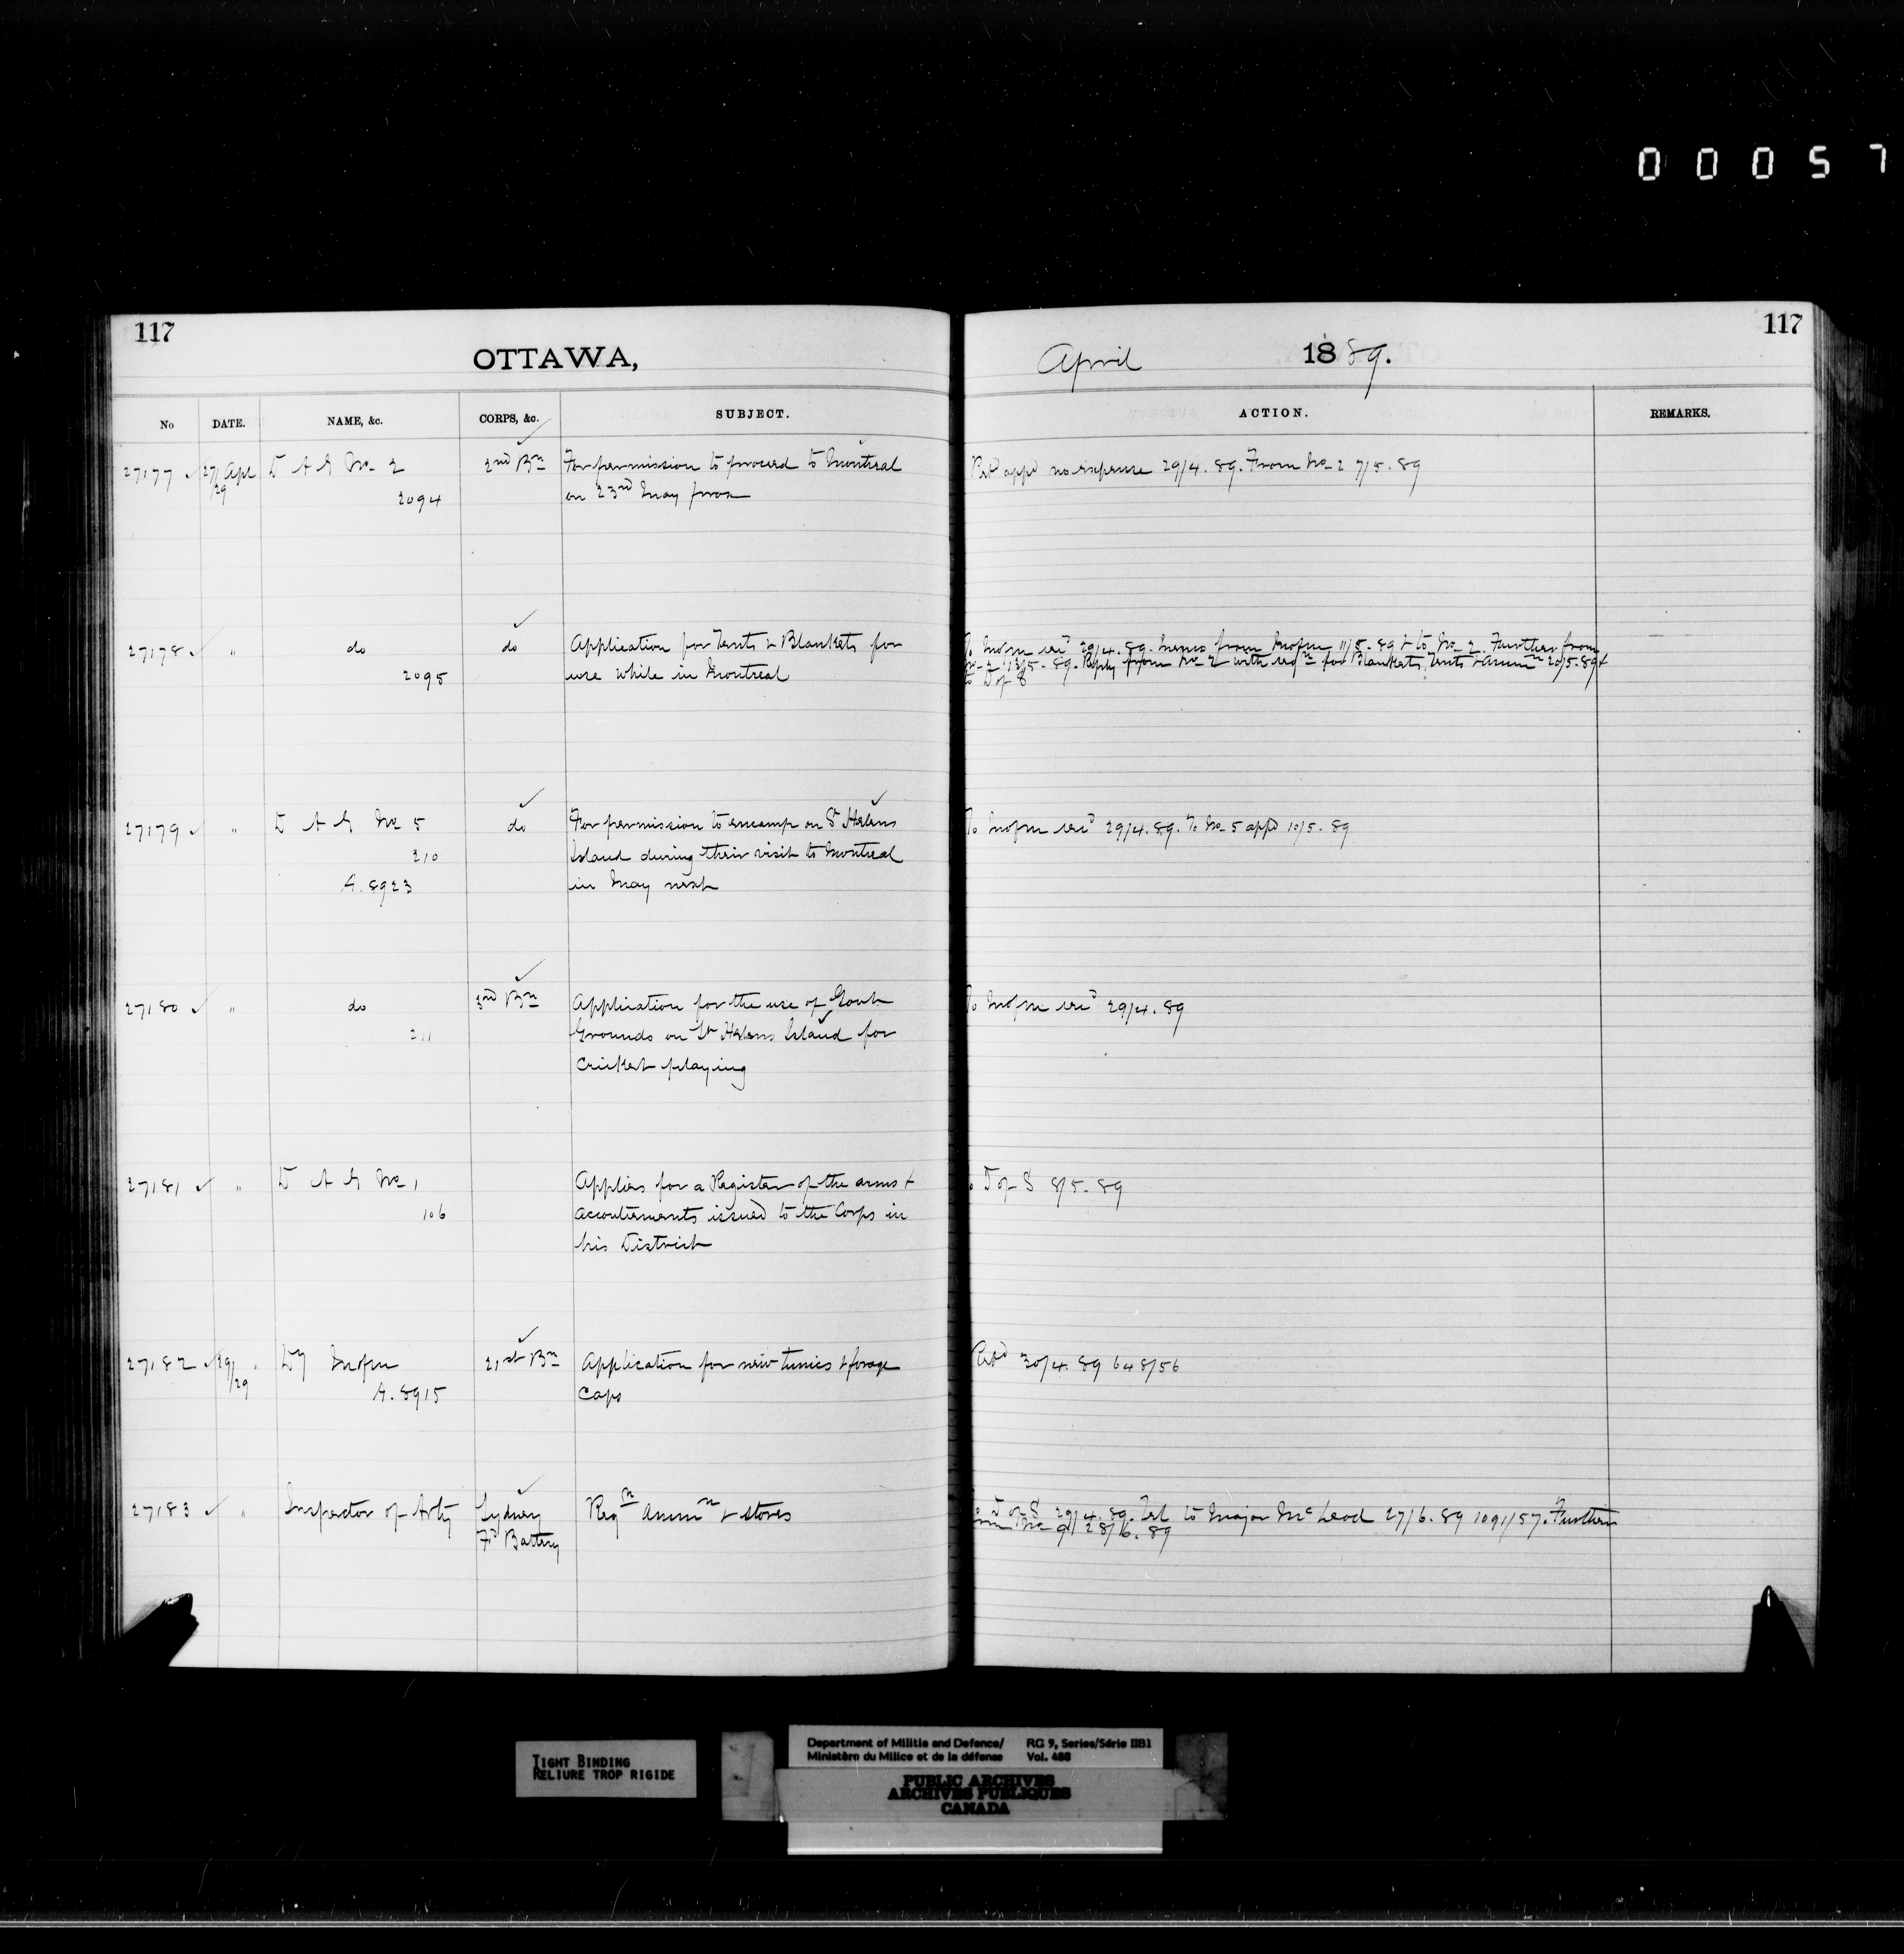 00057
117
OTTAWA,
April 1889.
117
No DATE. NAME, &c. CORPS, &c. SUBJECT. ACTION. REMARKS.
27177 27/29 Apl D A G No 2 2nd Bn For permission to proceed to Montreal Retd appd no expense 29/4.89. From No 2 7/5.89
2094 on 23rd May prox
27178 " do do Application for Tents & Blankets for To 29/4.89. Memo from 11/5.89 & to No 2. Further from
2095 use while in Montreal No 2 13/5.89. Reply from No 2 with reqn for Blankets, Tents & ammn 20/5.89 &
to D of S
27179 " D A G No 5 do For permission to encamp on St Helens To 29/4.89. To No 5 appd 10/5.89
210 Island during their visit to Montreal
A.8923 in May next
27180 " do 3rd Bn Application for the use of Govt To 29/4.89
211 Grounds on St Helens Island for
Cricket playing
27181 " D A G No 1 Applies for a Register of the arms & D of S 8/5.89
106 accoutrements issued to the Corps in
his District
27182 29/29 " 21st Bn Application for new tunics & forage Retd 30/4.89 648/56
A.8915 Caps
27183 " Inspector of Arty Sydney Reqn Ammn & stores To D of S 29/4.89. Tel to Major McLeod 27/6.89 1091/57. Further
Fd Battery from No 9 28/6.89
TIGHT BINDING
RELIURE TROP RIGIDE
Department of Militia and Defence/ RG 9, Series/Série IIB1
Ministèrn du Milice et de la défense Vol. 488
PUBLIC ARCHIVES
ARCHIVES PUBLIQUES
CANADA